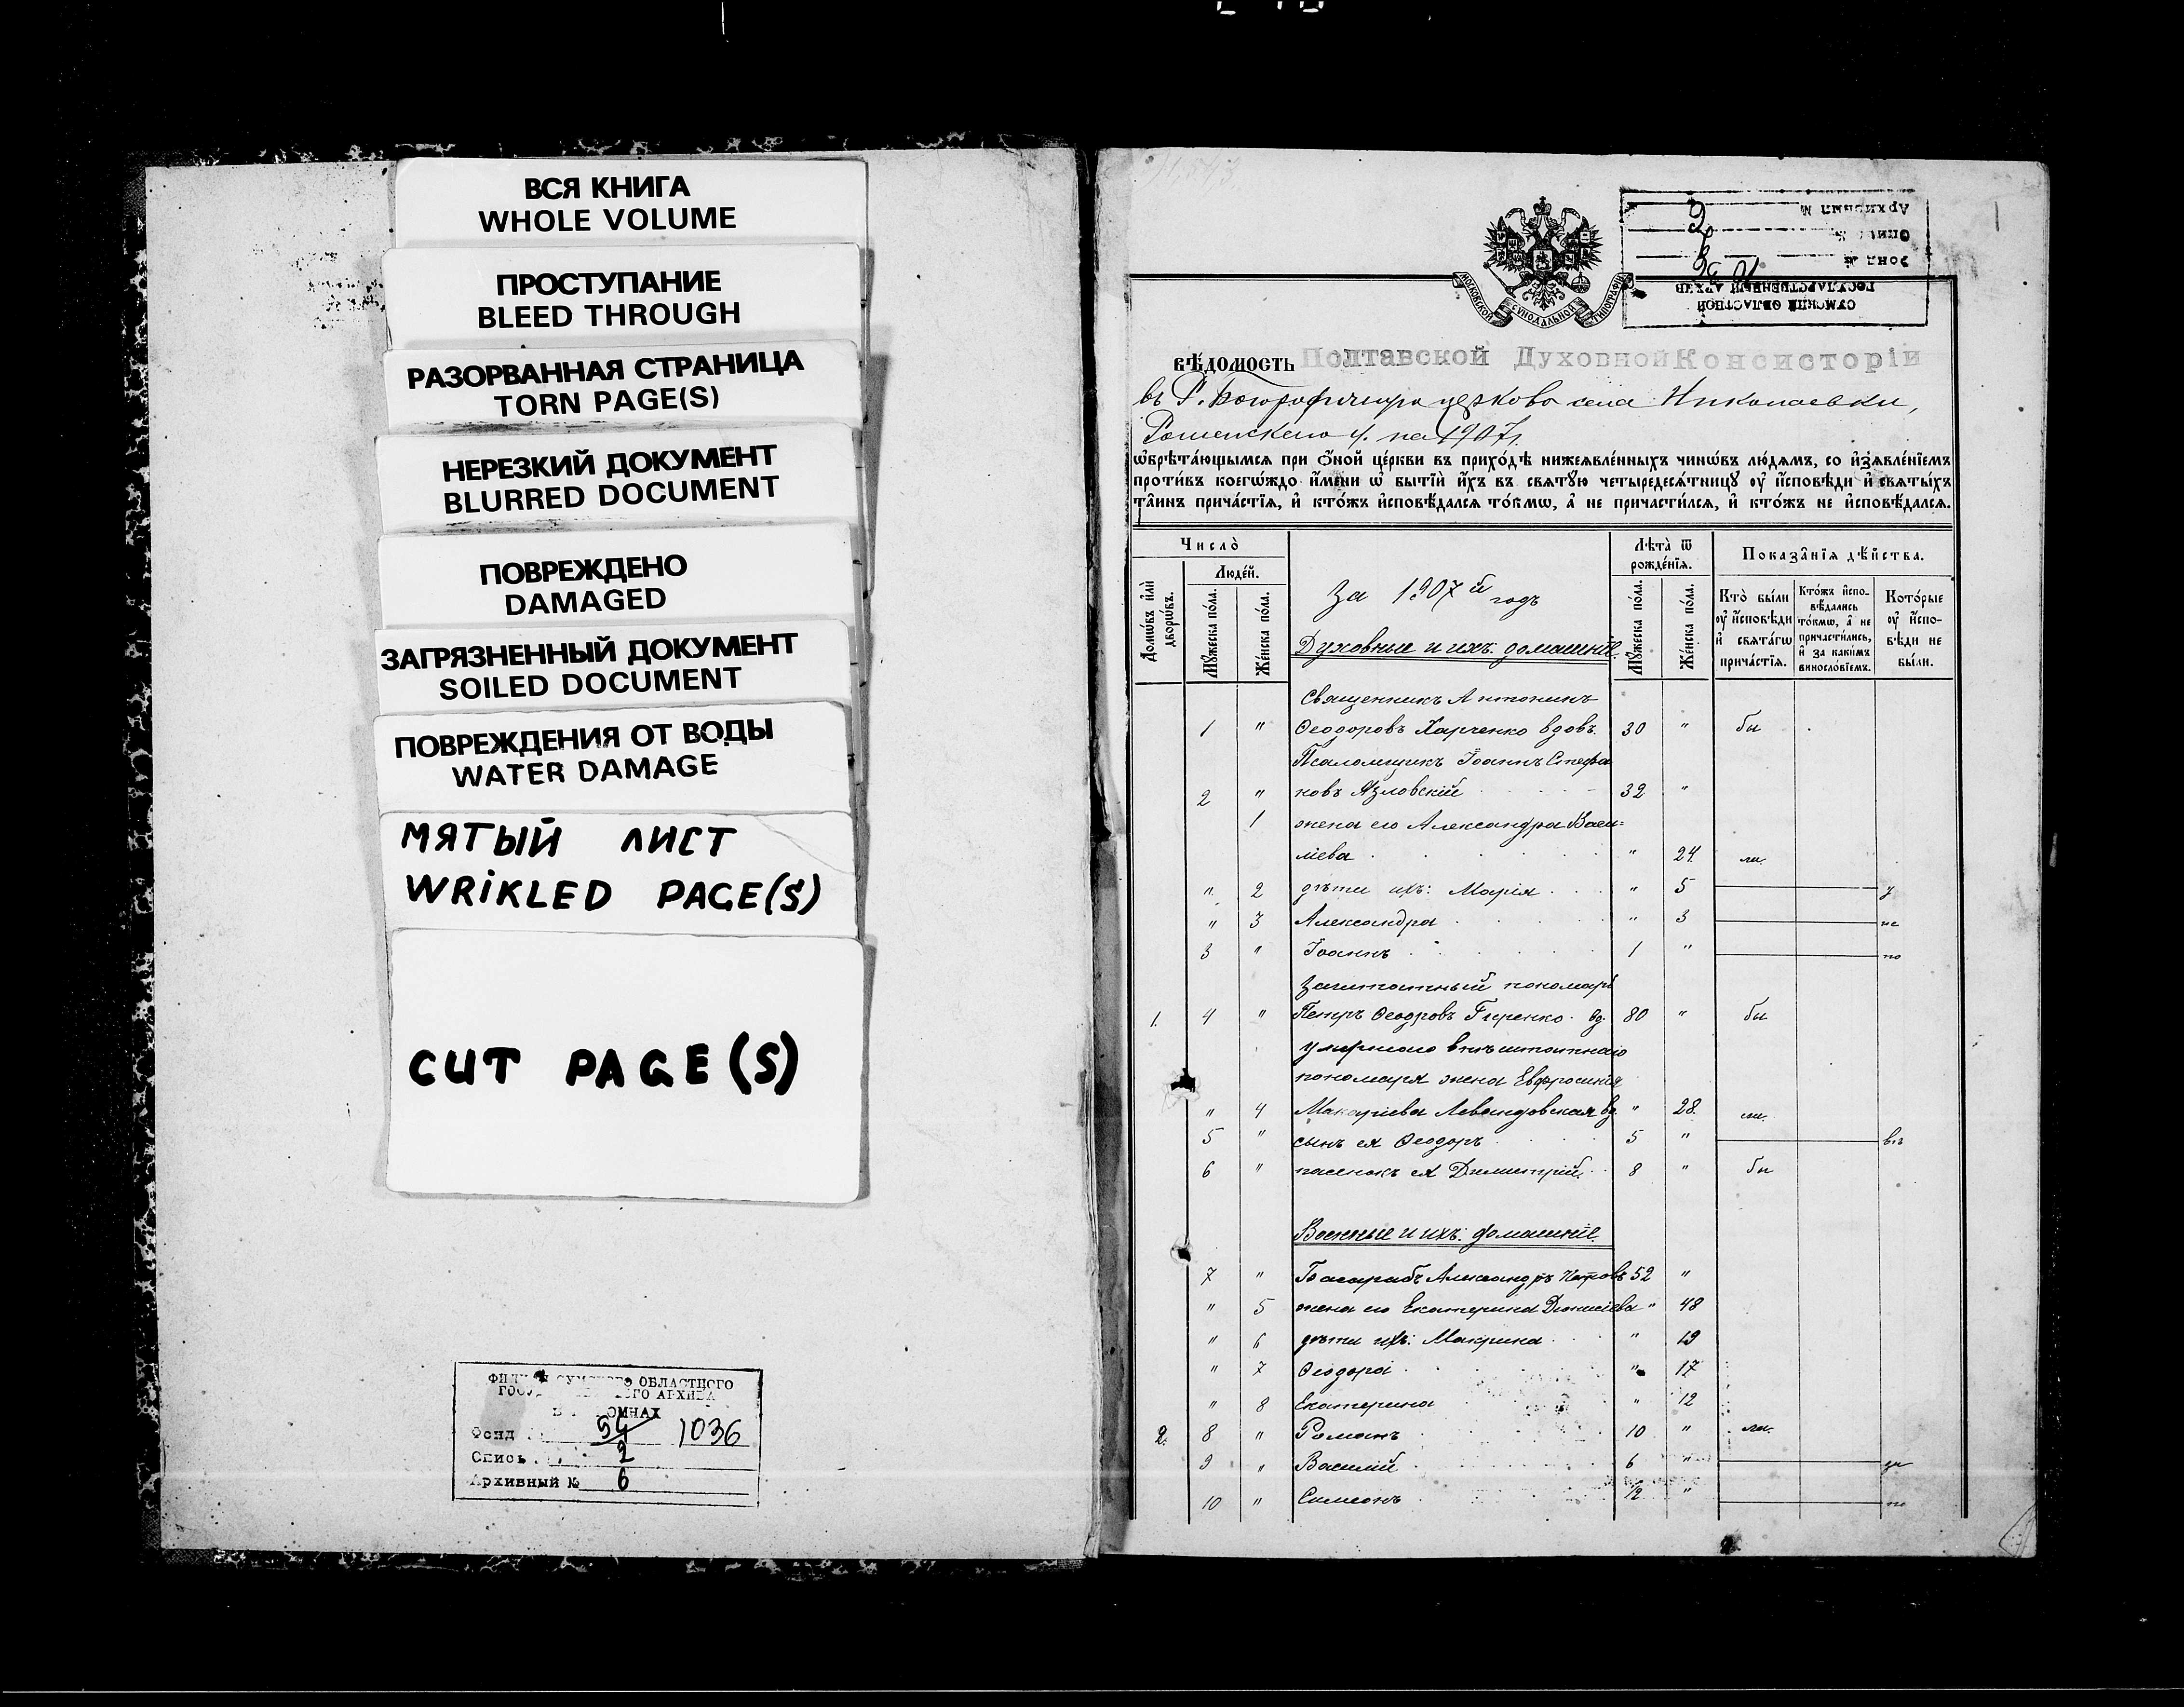 ВСЯ КНИГА
WHOLE VOLUME
ПРОСТУПАНИЕ
BLEED THROUGH
РАЗОРВАННАЯ СТРАНИЦА
TORN PAGE(S)
НЕРЕЗКИЙ ДОКУМЕНТ
BLURRED DOCUMENT
ПОВРЕЖДЕНО
DAMAGED
ЗАГРЯЗНЕННЫЙ ДОКУМЕНТ
SOILED DOCUMENT
ПОВРЕЖДЕНИЯ ОТ ВОДЫ
WATER DAMAGE
МЯТЫЙ ЛИСТ
WRiKLED PAGE(S)
CUT PAGE(S)
ОБЛАСТНОГО
АРХИВА
Фонд 54 1036
Опись 2
Архивный № 6
Архивный №
Опись
Фонд
СУМСКИЙ ОБЛАСТНОЙ
ГОСУДАРСТВЕННЫЙ АРХИВ
МОСКОВСКОЙ СѴНОДАЛЬНОЙ ТИПОГРАФІИ
вѣ́домость Полтавской Духовной Консисторіи
въ Р. Богородичную церковь села Николаевки,
Роменскаго у. на 1907 г.
ѡбрѣта́ющымся при ѻ҆́ной це́ркви въ прихо́дѣ нижеѧвле́нныхъ чинѡ́въ лю́дѧмъ, со и҆з̾ѧвле́нїемъ
проти́въ коегѡ́ждо и҆́мени ѡ҆ бытїѝ и҆́хъ въ свѧтꙋ́ю четыредесѧ́тницꙋ ᲂу҆ и҆́сповѣди и҆ свѧты́хъ
та̑инъ прича́стїѧ, и҆ кто́жъ и҆сповѣ́далсѧ то́кмѡ, а҆ не причасти́лсѧ, и҆ кто́жъ не и҆сповѣ́далсѧ.
Число̀
Люде́й.
Домѡ́въ и҆лѝ дворѡ́въ.
Мꙋ́жеска по́ла.
Же́нска по́ла.
За 1907й годъ
Духовные и ихъ: домашніе.
Лѣ́та ѿ рожде́нїѧ.
Мꙋ́жеска по́ла.
Же́нска по́ла.
Показа̑нїѧ дѣ́йства.
Кто̀ бы́ли ᲂу҆ и҆́сповѣди и҆ свѧта́гѡ прича́стїѧ.
Кто́жъ и҆сповѣ́дались то́кмѡ, а҆ не причасти́лись, и҆ за каки́мъ виносло́вїемъ.
Кото́рые ᲂу҆ и҆́сповѣди не бы́ли.
Священникъ Антонинъ
1 " Ѳеодоровъ Харченко вдовъ. 30 " бы
Псаломщикъ Іоаннъ Стефа
2 " новъ Язловскій 32 "
1 жена его Александра Васи=
ліева " 24 ли.
" 2 дѣти ихъ: Марія " 5 у
" 3 Александра " 3 не
3 " Іоаннъ 1 " по
Заштатный пономарь
1. 4 " Петръ Ѳеодоровъ Гиренко вд. 80 " бы
умершаго внѣштатнаго
пономаря жена Евфросинія
" 4 Макаріева Левандовская вд. " 28 ли.
5 " сынъ ея Ѳеодоръ 5 " въ
6 " пасынокъ ея Димитрій 8 " бы
Военные и ихъ: домашніе.
7 " Басарабъ Александръ Петровъ 52 "
" 5 жена его Екатерина Діонисіева " 48
" 6 дѣти ихъ: Макрина " 19
" 7 Ѳеодора " 17
" 8 Екатерина " 12
2. 8 " Романъ 10 " ли.
9 " Василій 6 "
10 " Симеонъ 1/2 " по